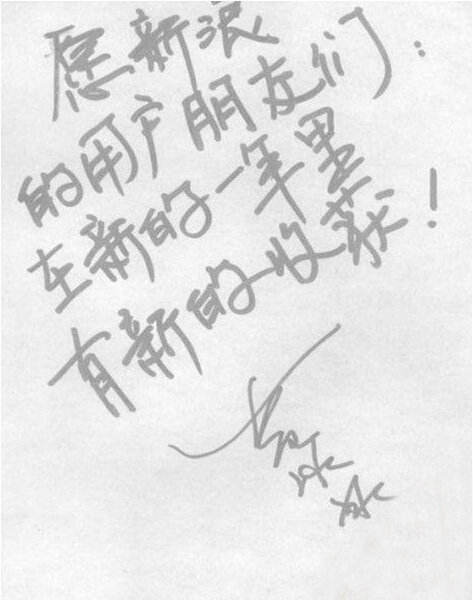 愿新浪
的用户朋友们:
在新的一年里
有新的收获!